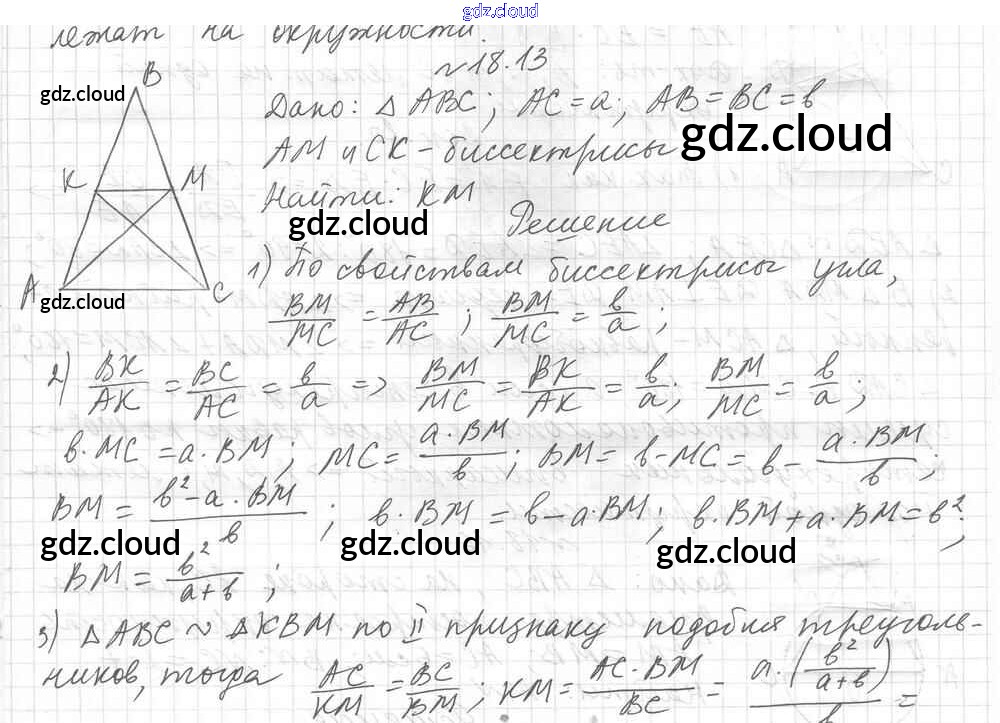 gdz.cloud
лежат на окружности.
~18.13
B
gdz.cloud
Дано: △ABC; AC = a; AB = BC = b
gdz.cloud
AM и CK - биссектрисы
K M
Найти: KM
gdz.cloud
Решение
A C
gdz.cloud
1) По свойствам биссектрисы угла,
BM/MC = AB/AC ; BM/MC = b/a ;
2) BK/AK = BC/AC = b/a => BM/MC = BK/AK = b/a; BM/MC = b/a ;
b·MC = a·BM; MC = a·BM/b ; BM = b-MC = b - a·BM/b ;
BM = b² - a·BM/b ; b·BM = b - a·BM; b·BM + a·BM = b²;
gdz.cloud gdz.cloud gdz.cloud
BM = b²/a+b ;
3) △ABC ~ △KBM по II признаку подобия треуголь-
ников, тогда AC/KM = BC/BM ; KM = AC·BM/BC = a·(b²/a+b)/b =